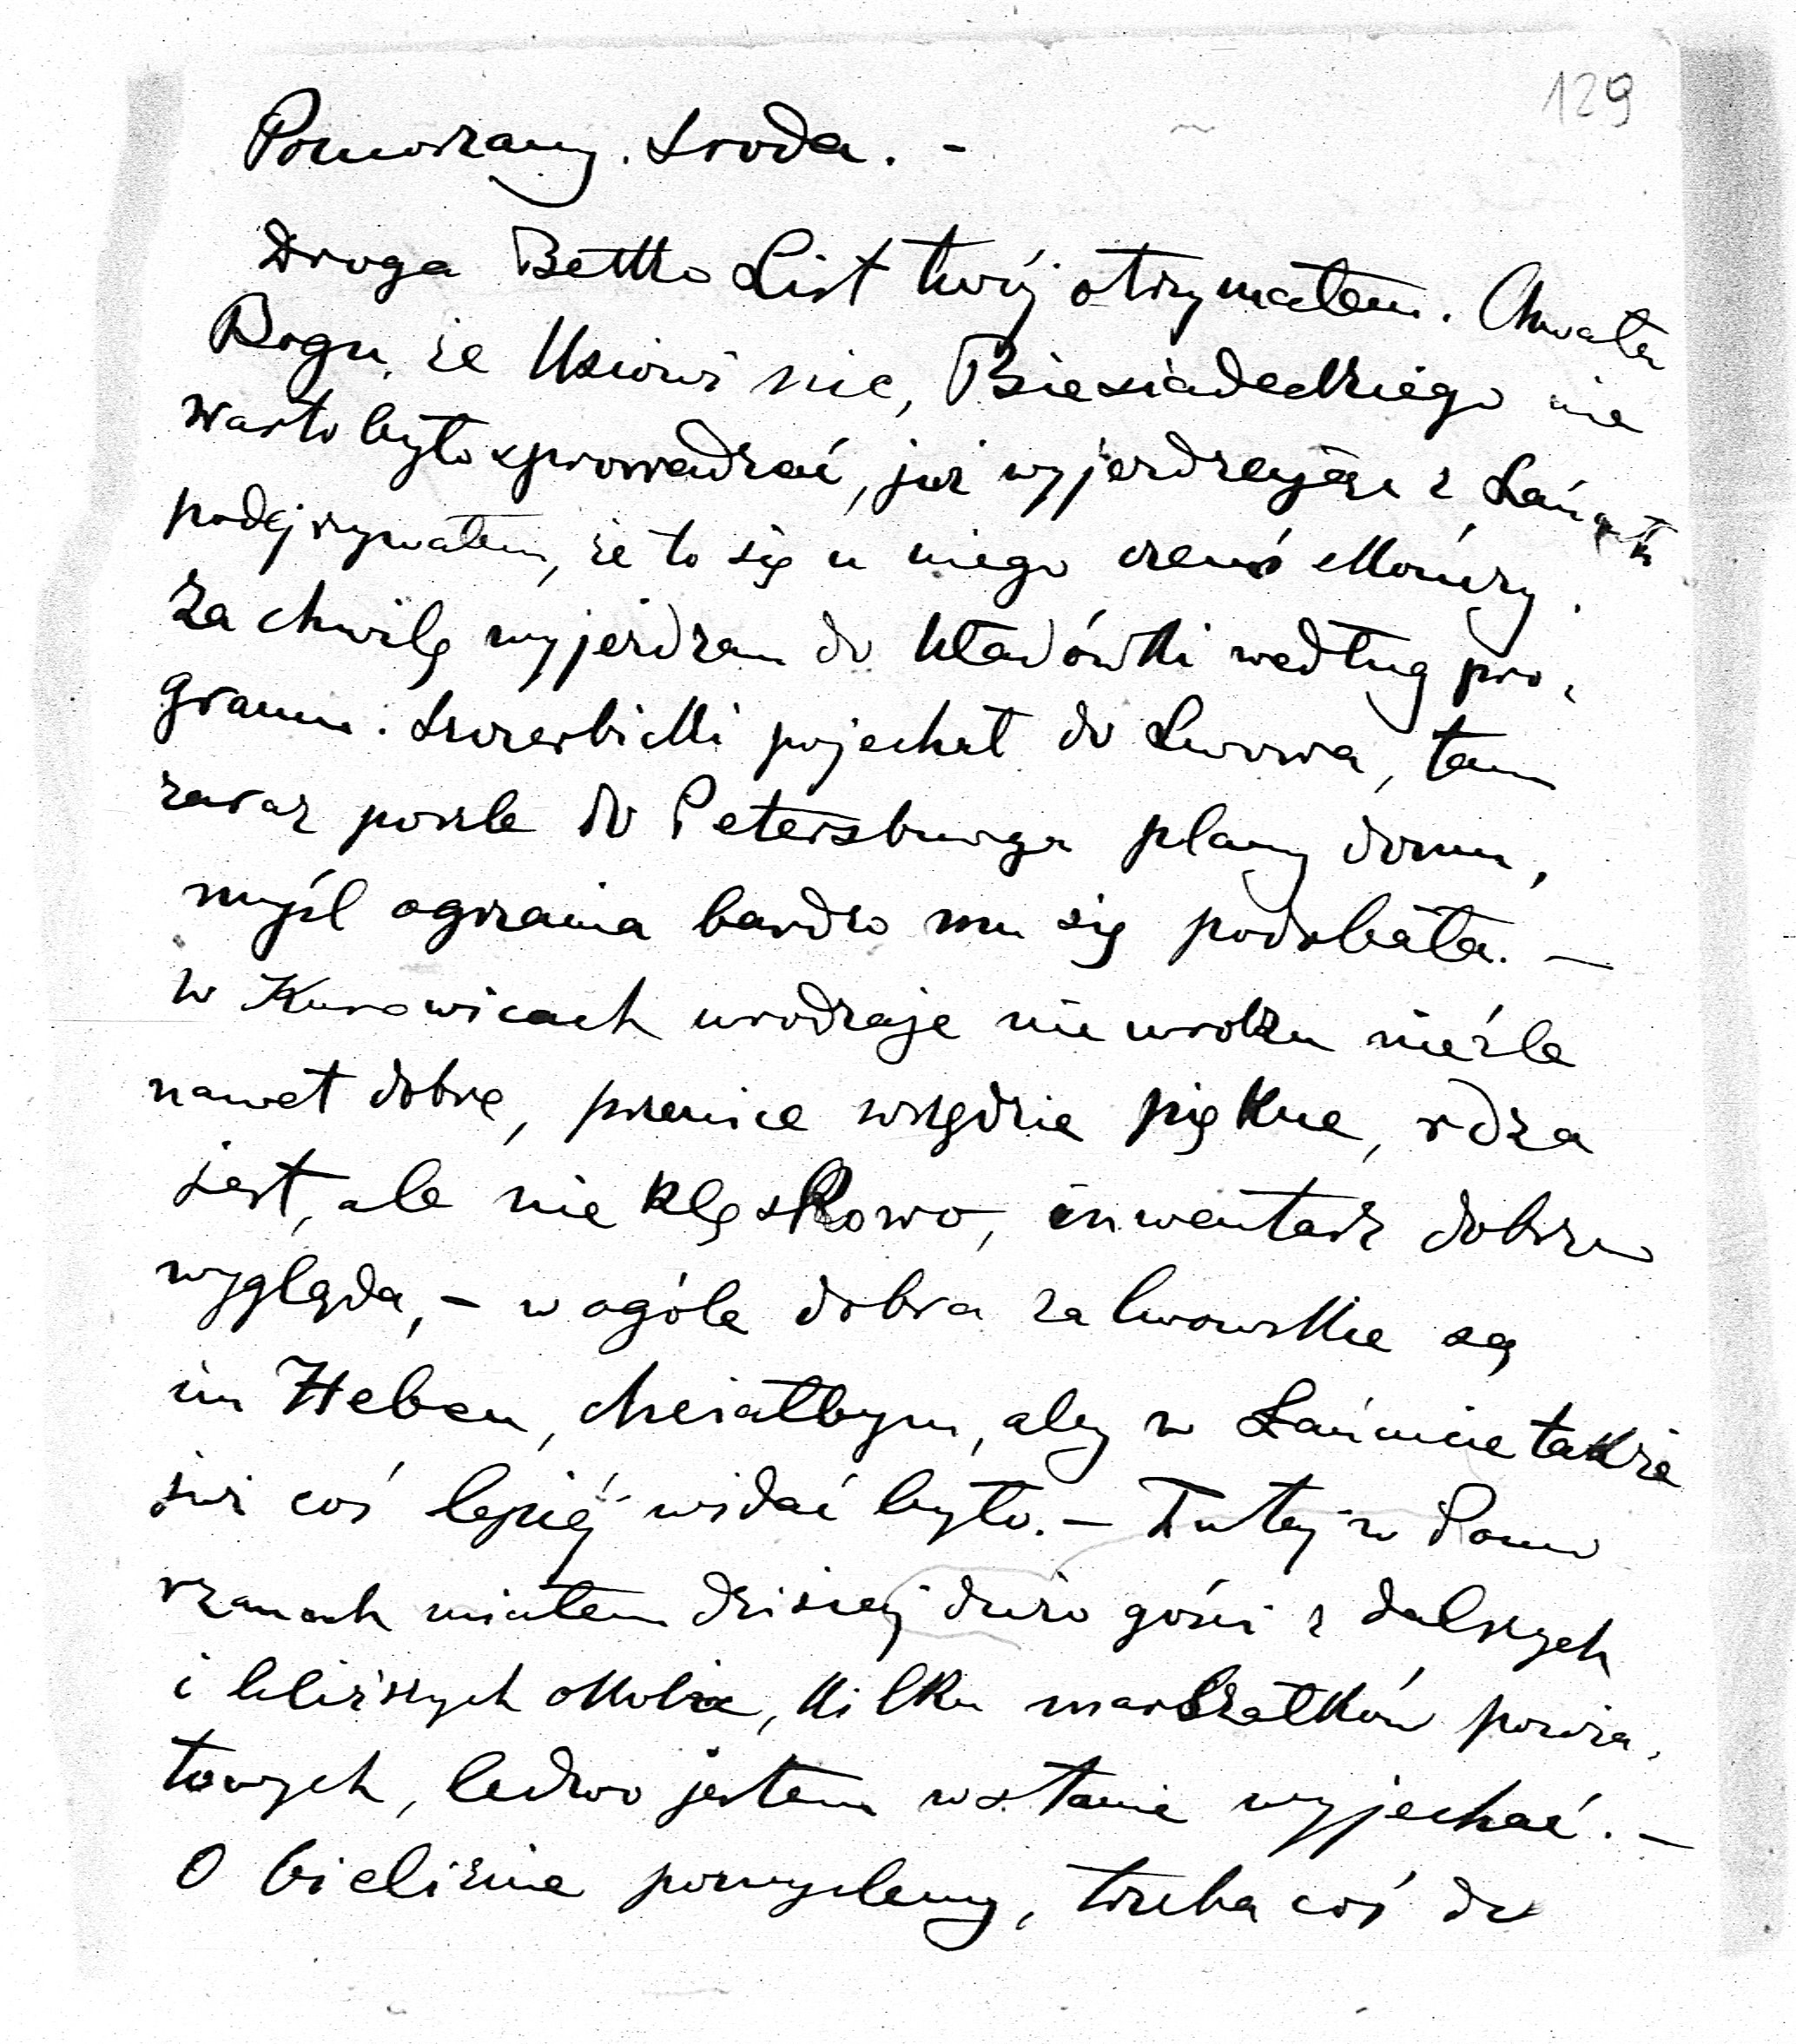 129
Pomorzany. Sroda. -
Droga Bettko List twój otrzymałem. Chwała
Bogu, że Usiowi nic, Biesiadeckiego nie
warto było sprowadzać, już wyjerdżając z Łańcuta
podejrzywałem, że to się u niego czemś skończy.
Za chwilę wyjeżdżam do Kładówki według pro-
gramu. Szczerbicki pojechał do Lwowa, tam
zaraz poszle do Petersburga plany domu,
myśl ogrzania bardzo mu się podobała. —
w Kurowicach urodzaje nieuroku nieźle
nawet dobre, pszenice wszędzie piękne, rdza
jest, ale nie klęskowo, inwentarz dobrze
wygląda, - w ogóle dobra zalwowskie są
im Heben, chciałbym, aby w Łańcucie także
już coś lepiéj widać było. - Tutej w Pomo
rzanach miałem dzisiej dużo gości z dalszych
i bliższych okolic, kilku marszałków powia-
towych, ledwo jestem wstanie wyjechać. -
O bieliźnie pomyslemy, trzeba coś do